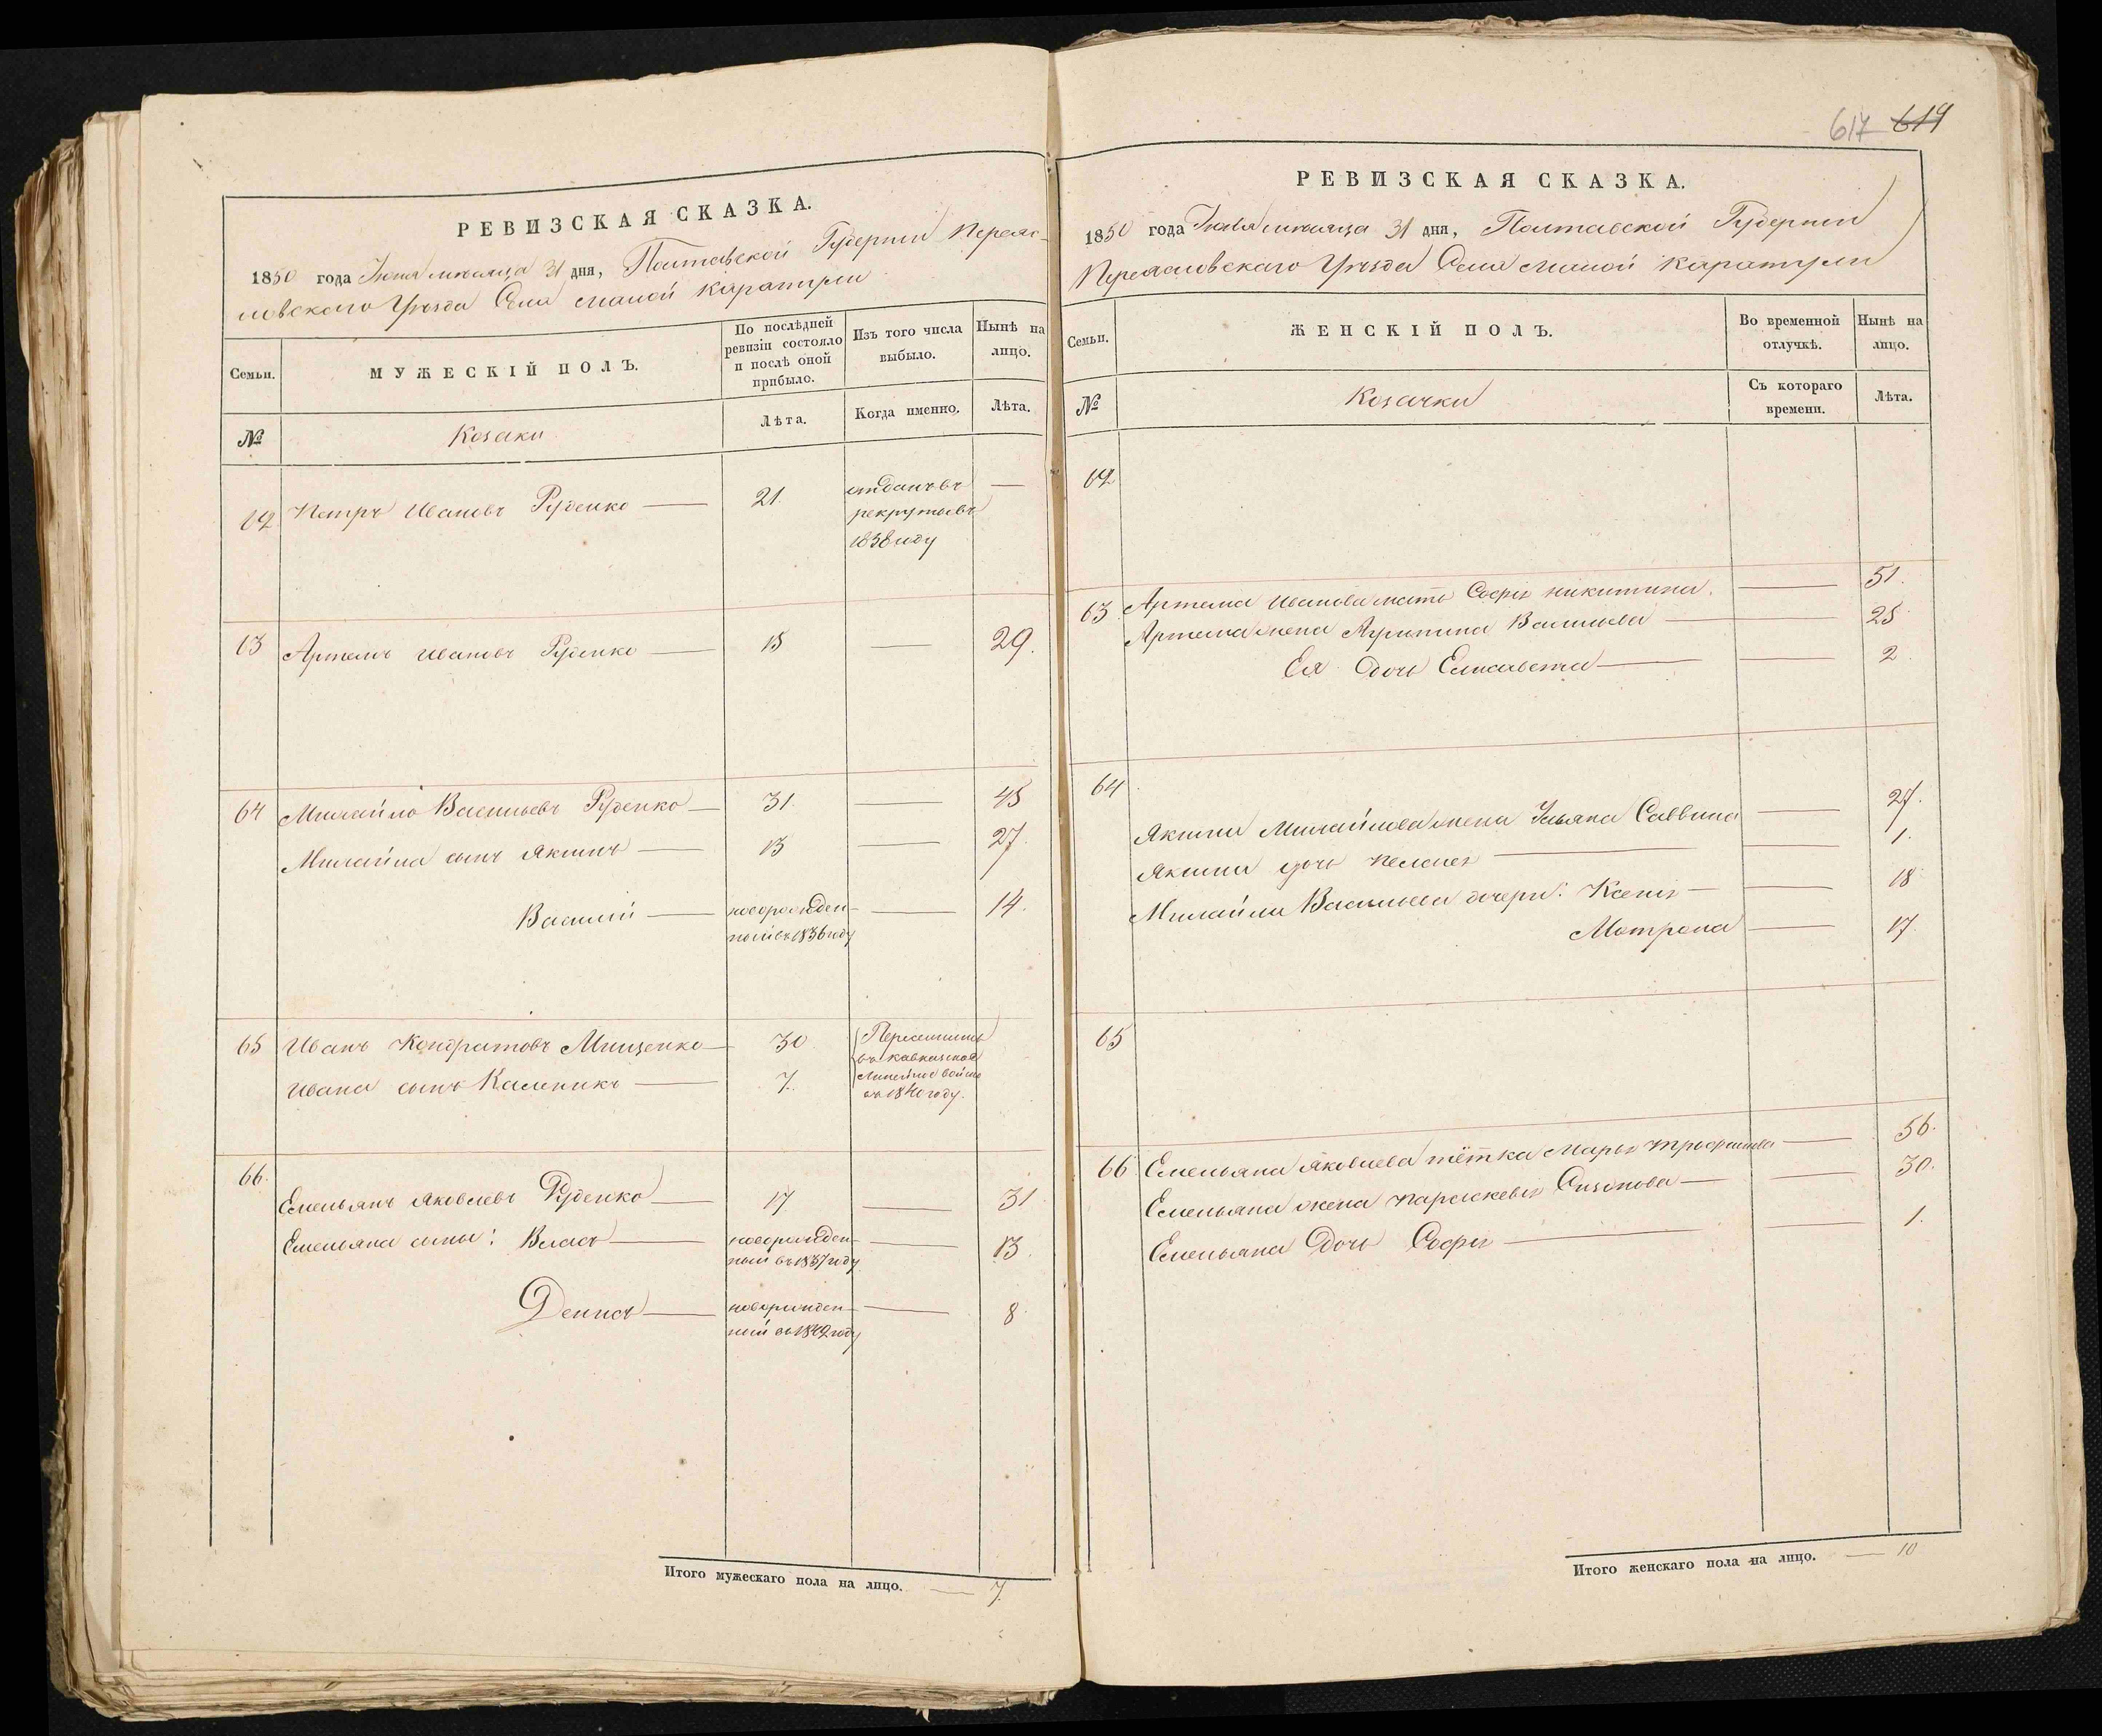 617 619
РЕВИЗСКАЯ СКАЗКА.
1850 года Июля месяца 31 дня, Полтавской Губернии Переяс-
ловскаго Уѣзда Села Малой Каратули
Семьи.
МУЖЕСКІЙ ПОЛЪ.
По послѣдней ревизіи состояло и послѣ оной прибыло.
Изъ того числа выбыло.
Нынѣ на лицо.
№
Козаки
Лѣта.
Когда именно.
Лѣта.
62 Петръ Ивановъ Руденко — 21. отданъ въ —
рекруты въ
1838 году
63 Артемъ Ивановъ Руденко — 15 — 29.
64 Михайло Васильевъ Руденко — 31. — 45
Михайла сынъ Якимъ — 13 — 27.
Василій — новорожден- — 14.
ный въ 1836 году
65 Иванъ Кондратовъ Мищенко — 30. Переселились
въ Кавказкое
Ивана сынъ Каленикъ — 7. Линейное войско
въ 1840 году.
66. Емельянъ Яковлевъ Руденко — 17. — 31
Емельяна сыны: Власъ — новорожден- — 13.
ный въ 1837 году
Денисъ — новорожден- — 8
ный въ 1842 году
Итого мужескаго пола на лицо. — 7.
РЕВИЗСКАЯ СКАЗКА.
1850 года Июля месяца 31 дня, Полтавской Губернии
Переясловскаго Уѣзда Села Малой Каратули
Семьи.
ЖЕНСКІЙ ПОЛЪ.
Во временной отлучкѣ.
Нынѣ на лицо.
№
Козачки
Съ котораго времени.
Лѣта.
62
63 Артема Иванова мать Софья Никитина. — 51.
Артема жена Агрипина Васильева — 25
Ея Дочь Елисавета — 2.
64
Якима Михайлова жена Ульяна Саввина — 27.
Якима дочь Пелагея — 1.
Михайла Васильева дочери: Ксенья — 18
Мотрона — 17.
65
66 Емельяна Яковлева тётка Марья Трофимова — 56.
Емельяна жена Параскевья — 30.
Емельяна Дочь Софья — 1.
Итого женскаго пола на лицо. — 10